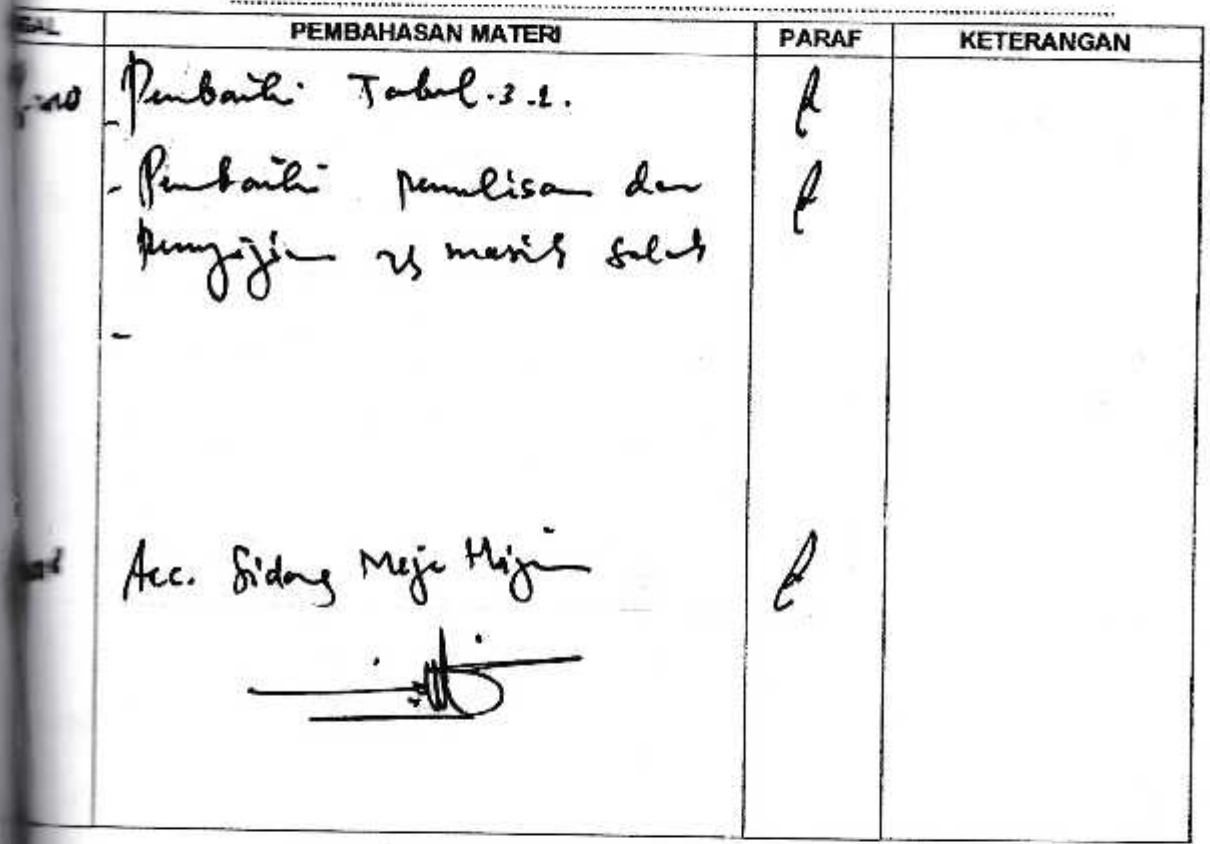 PEMBAHASAN MATERI PARAF KETERANGAN
Perbaiki Tabel. 3.1.
- Perbaiki penulisan dan
penyajian yg masih salah
-
Acc. Sidang Meja Hijau